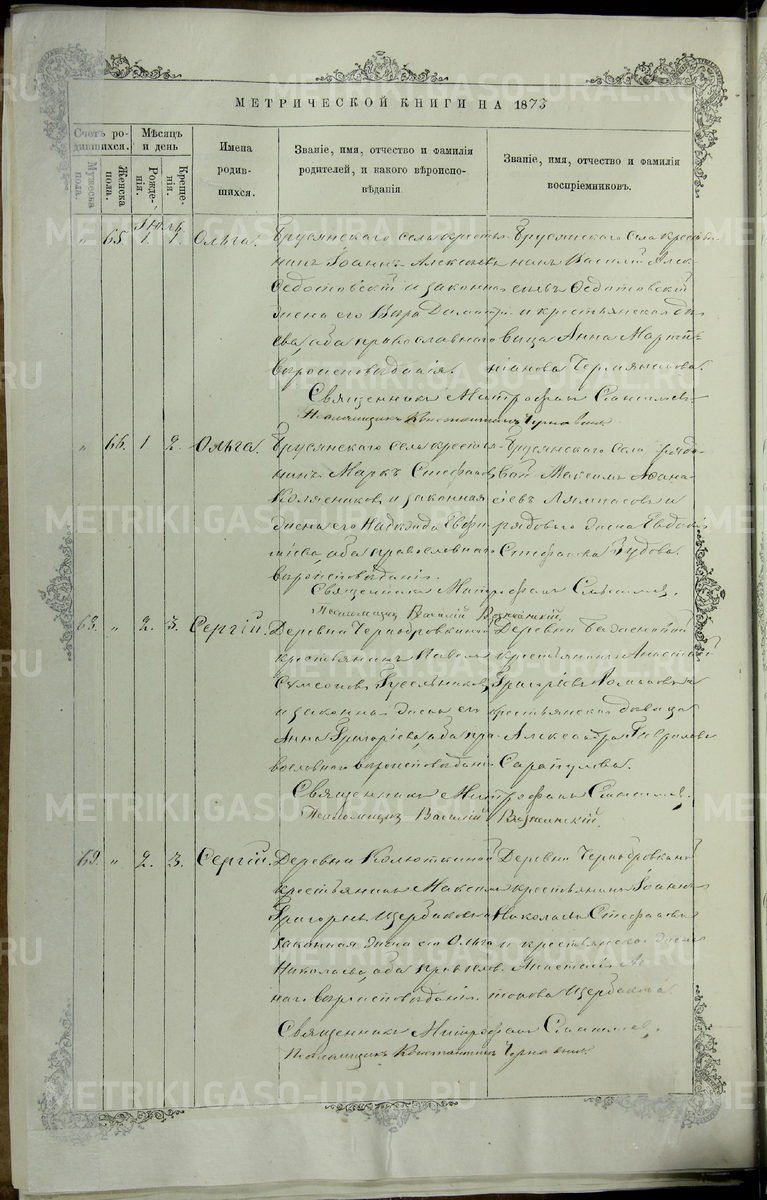 МЕТРИЧЕСКОЙ КНИГИ НА 1873
Счетъ родившихся.
Мужеска пола.
Женска пола.
Мѣсяцъ и день
Рожденія.
Крещенія.
Имена родившихся.
Званіе, имя, отчество и фамилія родителей, и какого вѣроисповѣданія.
Званіе, имя, отчество и фамилія воспріемниковъ.
" 65. 1. 1. Ольга.
Брусянскаго села крестья-
нинъ Іоаннъ Алексѣевъ
Ѳедотовскій и законная
жена его Вѣра Димитрі-
ева, оба православнаго
вѣроисповѣданія.
Брусянскаго села крестья-
нинъ Василій Алек-
сѣевъ Ѳедотовскій
и крестьянская дѣ-
вица Анна
Священникъ Митрофанъ
Псаломщикъ Константинъ
" 66. 1 2. Ольга.
Брусянскаго села крестья-
нинъ Маркъ Стефановъ
Колясниковъ и законная
жена его Надежда Евфи-
міева, оба православнаго
вѣроисповѣданія.
Брусянскаго села рядо-
вой Максимъ Аѳана-
сіевъ Лямпасовъ и
рядоваго жена Евдокія
Стефанова Зудова.
Священникъ Митрофанъ
Псаломщикъ Василій
68. " 2. 3. Сергій.
Деревни Чернобровкиной
крестьянинъ Павелъ
Сумеоновъ Гусельниковъ
и законная жена его
Анна Григоріева, оба пра-
вославнаго вѣроисповѣданія
Деревни
крестьянинъ Анастасій
Григорьевъ
крестьянская дѣвица
Александра Гаврилова
Сарапулова.
Священникъ Митрофанъ
Псаломщикъ Василій
69. " 2. 3. Сергій.
Деревни Колюткиной
крестьянинъ Максимъ
Григорьевъ Щербаковъ и
законная жена его Ольга
Николаева, оба православ-
наго вѣроисповѣданія.
Деревни Чернобровкиной
крестьянинъ Іоаннъ
Николаевъ Стефановъ
и крестьянская жена
Анастасія
Щербакова
Священникъ Митрофанъ
Псаломщикъ Константинъ
METRIKI.GASO-URAL.RU